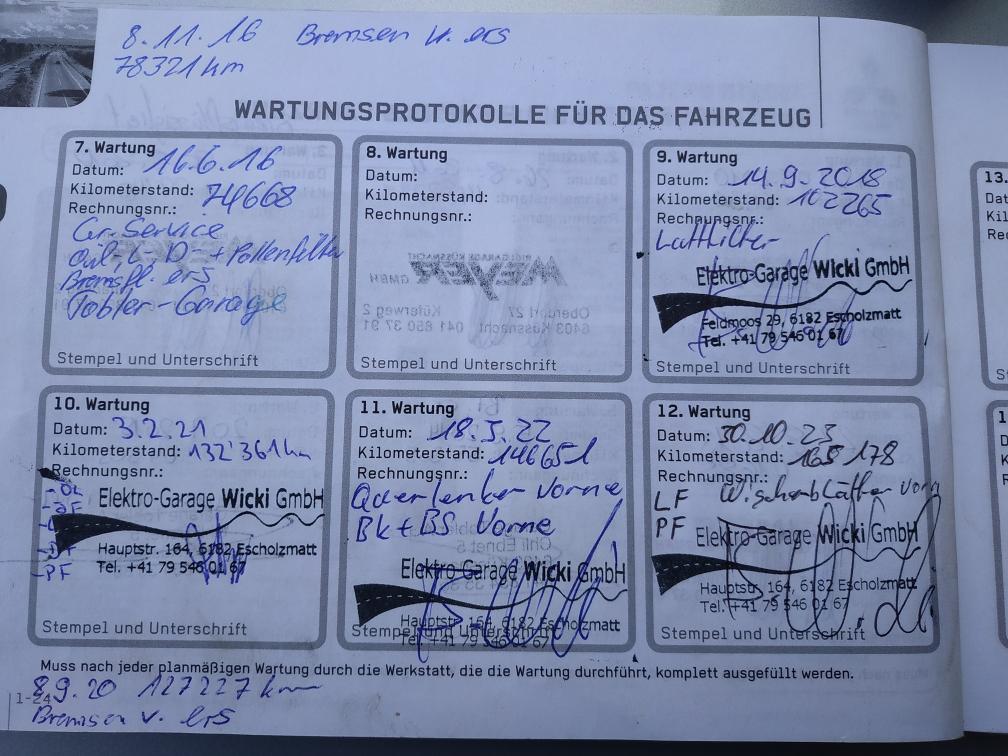 8.11.16 Bremsen H. ers
78321 km
WARTUNGSPROTOKOLLE FÜR DAS FAHRZEUG
7. Wartung
Datum: 16.6.16
Kilometerstand: 74668
Rechnungsnr.:
Gr. Service
Oil-, L-, D- + Pollenfilter
Bremsfl. ers
Tobler-Garage
Stempel und Unterschrift
8. Wartung
Datum:
Kilometerstand:
Rechnungsnr.:
Stempel und Unterschrift
9. Wartung
Datum: 14.9.2018
Kilometerstand: 102265
Rechnungsnr.:
Luftfilter
Elektro-Garage Wicki GmbH
Feldmoos 29, 6182 Escholzmatt
Tel. +41 79 546 01 67
Stempel und Unterschrift
10. Wartung
Datum: 3.2.21
Kilometerstand: 132'361 km
Rechnungsnr.:
-PF
Elektro-Garage Wicki GmbH
Hauptstr. 164, 6182 Escholzmatt
Tel. +41 79 546 01 67
Stempel und Unterschrift
11. Wartung
Datum: 18.5.22
Kilometerstand: 146651
Rechnungsnr.:
Querlenker Vorne
Bk + BS Vorne
Elektro-Garage Wicki GmbH
Hauptstr. 164, 6182 Escholzmatt
Stempel und Unterschrift
Tel. +41 79 546 01 67
12. Wartung
Datum: 30.10.23
Kilometerstand: 165 178
Rechnungsnr.:
LF Wischerblätter vorn
PF
Elektro-Garage Wicki GmbH
Hauptstr. 164, 6182 Escholzmatt
Tel. +41 79 546 01 67
Stempel und Unterschrift
Muss nach jeder planmäßigen Wartung durch die Werkstatt, die die Wartung durchführt, komplett ausgefüllt werden.
8.9.20 127227 km
1-24
Bremsen v. ers
13.